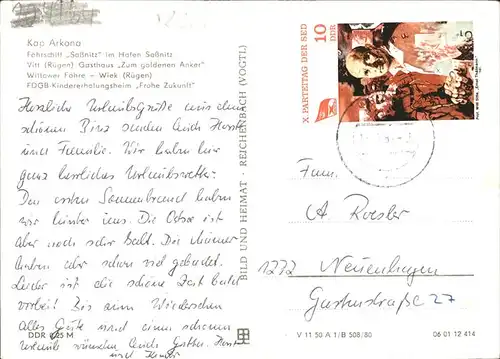 Kap Arkona
Fährschiff „Saßnitz" im Hafen Saßnitz
Vitt (Rügen) Gasthaus „Zum goldenen Anker"
Wittower Fähre – Wiek (Rügen)
FDGB-Kindererholungsheim „Frohe Zukunft"
Herzliche Urlaubsgrüße aus dem
schönen Binz senden Euch Horst
und Familie. Wir haben hier
ganz herrliches Urlaubswetter.
Den ersten Sonnenbrand haben
wir hinter uns. Die Ostsee ist
aber noch sehr kalt. Die Männer
haben aber schon viel gebadet.
Leider ist die schöne Zeit bald
vorbei! Bis zum Wiedersehen
alles Gute und einen schönen
Urlaub wünschen Euch Horst
und Kinder
DDR 0,25 M
BILD UND HEIMAT · REICHENBACH (VOGTL)
X. PARTEITAG DER SED
10
DDR
Fam.
A. Roesler
1272 Neuenhagen
Gartenstraße 27
V 11 50 A 1/B 508/80
06 01 12 414